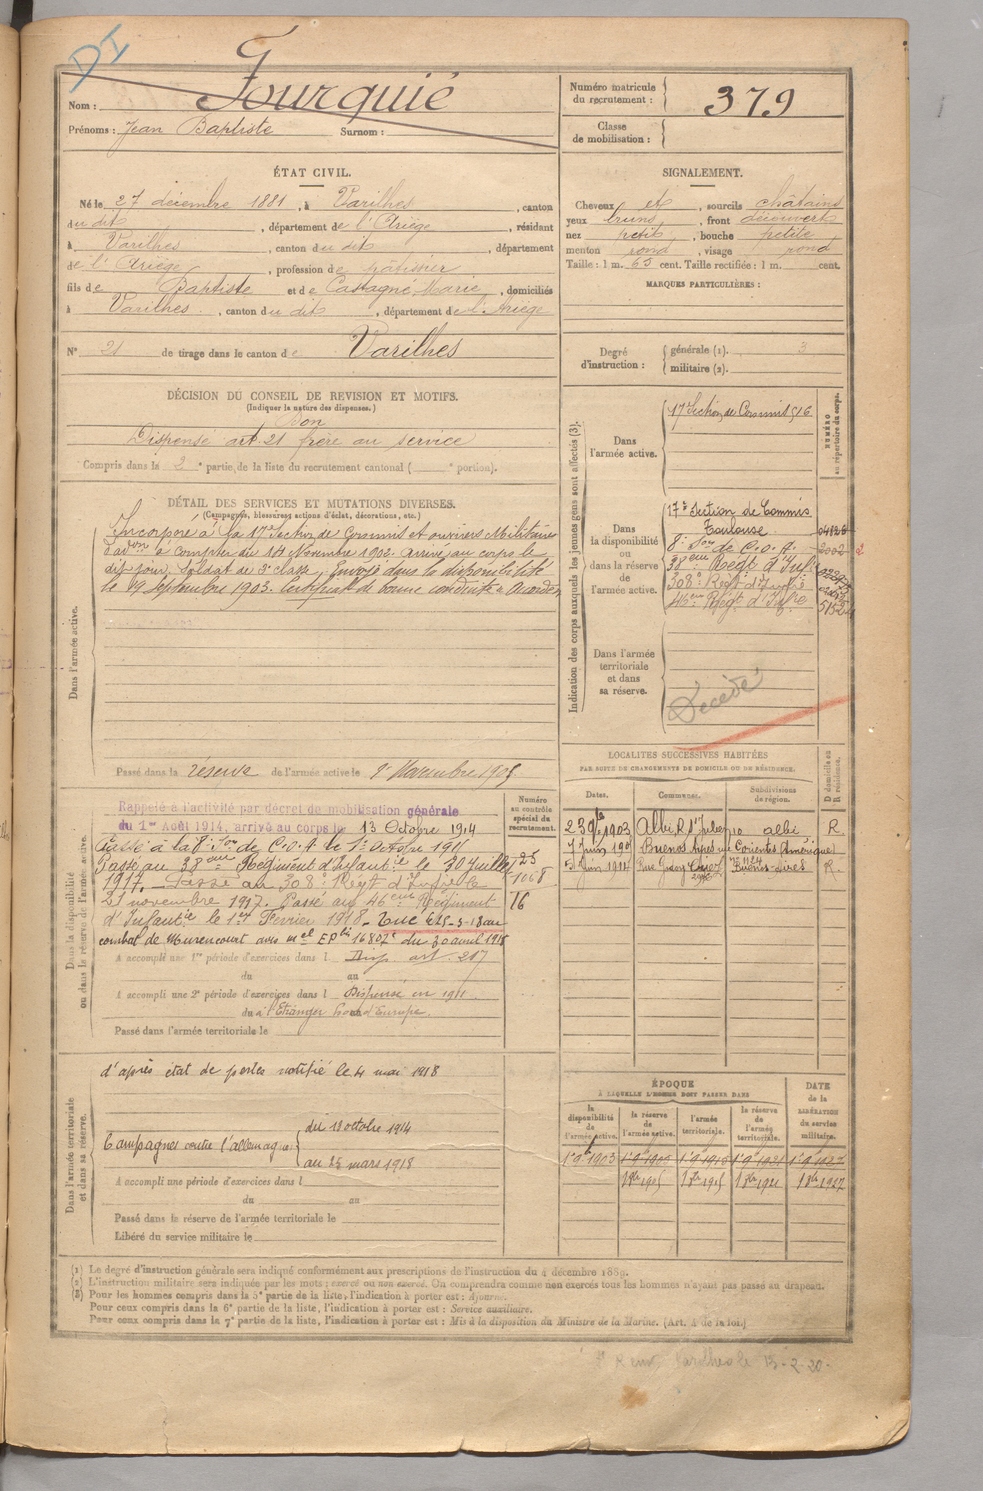 DI
Nom : Fourquié
Prénoms : Jean Baptiste Surnom :
Numéro matricule du recrutement : 379
Classe de mobilisation :
ÉTAT CIVIL.
Né le 27 décembre 1881, à Varilhes, canton
du dit, département de l'Ariège, résidant
à Varilhes, canton du dit, département
de l'Ariège, profession de pâtissier
fils de Baptiste et de Castagné Marie, domiciliés
à Varilhes, canton du dit, département de l'Ariège
N° 21 de tirage dans le canton de Varilhes
SIGNALEMENT.
Cheveux et, sourcils châtains
yeux bruns, front découvert
nez petit, bouche petite
menton rond, visage rond
Taille : 1 m. 65 cent. Taille rectifiée : 1 m. cent.
MARQUES PARTICULIÈRES :
Degré d'instruction : générale (1). 3
militaire (2).
DÉCISION DU CONSEIL DE REVISION ET MOTIFS.
(Indiquer la nature des dispenses.)
Bon
Dispensé art. 21 frère au service
Compris dans la 2e partie de la liste du recrutement cantonal ( e portion).
DÉTAIL DES SERVICES ET MUTATIONS DIVERSES.
(Campagnes, blessures, actions d'éclat, décorations, etc.)
Dans l'armée active.
Incorporé à la 17e Section de Commis et ouvriers Militaires
d'adon à compter du 14 Novembre 1902. Arrivé au corps le
dit jour, Soldat de 2e classe. Envoyé dans la disponibilité
le 19 Septembre 1903. Certificat de bonne conduite "Accordé"
Passé dans la réserve de l'armée active le 1er Novembre 1905
Indication des corps auxquels les jeunes gens sont affectés (3).
NUMÉRO au répertoire du corps.
Dans l'armée active.
17e Section de Commis 516
Dans la disponibilité ou dans la réserve de l'armée active.
17e Section de Commis
Toulouse
8e Son de C.O.A. 2002
38eme Regt d'Infie
308e Regt d'Infie
46eme Regt d'Infie
Dans l'armée territoriale et dans sa réserve.
Décédé
LOCALITÉS SUCCESSIVES HABITÉES
PAR SUITE DE CHANGEMENTS DE DOMICILE OU DE RÉSIDENCE.
Dates. Communes. Subdivisions de région. D domicile ou R résidence.
23 9bre 1903 Albi, R. St Julien 10 albi R.
7 Juin Buenos Aires rue Corientes (Amérique)
Buenos-Aires R.
Numéro au contrôle spécial du recrutement.
Dans la disponibilité ou dans la réserve de l'armée active.
Rappelé à l'activité par décret de mobilisation générale
du 1er Août 1914, arrivé au corps le 13 Octobre 1914
Passé à la 8e Son de C.O.A. le 1er Octobre 1911
Passé au 38eme Régiment d'Infantie le 30 Juillet
1917. Passé au 308e Regt d'Infie le
21 novembre 1917. Passé au 46eme Régiment
d'Infantie le 1er Février 1918. Tué le 25-3-18 au
combat de Murencourt avis mel EP 16807 du 30 avril 1918
A accompli une 1re période d'exercices dans l Disp. art. 217
du au
A accompli une 2e période d'exercices dans l Dispensé en 1911
du à l'Etranger hors d'Europe.
Passé dans l'armée territoriale le
Dans l'armée territoriale et dans sa réserve.
d'après état de pertes notifié le 4 mai 1918
Campagnes contre l'allemagne
du 13 octobre 1914
au 25 mars 1918
A accompli une période d'exercices dans l
du au
Passé dans la réserve de l'armée territoriale le
Libéré du service militaire le
ÉPOQUE
À LAQUELLE L'HOMME DOIT PASSER DANS
la disponibilité de l'armée active. la réserve de l'armée active. l'armée territoriale. la réserve de l'armée territoriale.
DATE de la LIBÉRATION du service militaire.
1er 9bre 1903
(1) Le degré d'instruction générale sera indiqué conformément aux prescriptions de l'instruction du 4 décembre 1889.
(2) L'instruction militaire sera indiquée par les mots : exercé ou non exercé. On comprendra comme non exercés tous les hommes n'ayant pas passé au drapeau.
(3) Pour les hommes compris dans la 5e partie de la liste, l'indication à porter est : Ajourné.
Pour ceux compris dans la 6e partie de la liste, l'indication à porter est : Service auxiliaire.
Pour ceux compris dans la 7e partie de la liste, l'indication à porter est : Mis à la disposition du Ministre de la Marine. (Art. 4 de la loi.)
Varilhes le 13-2-20-